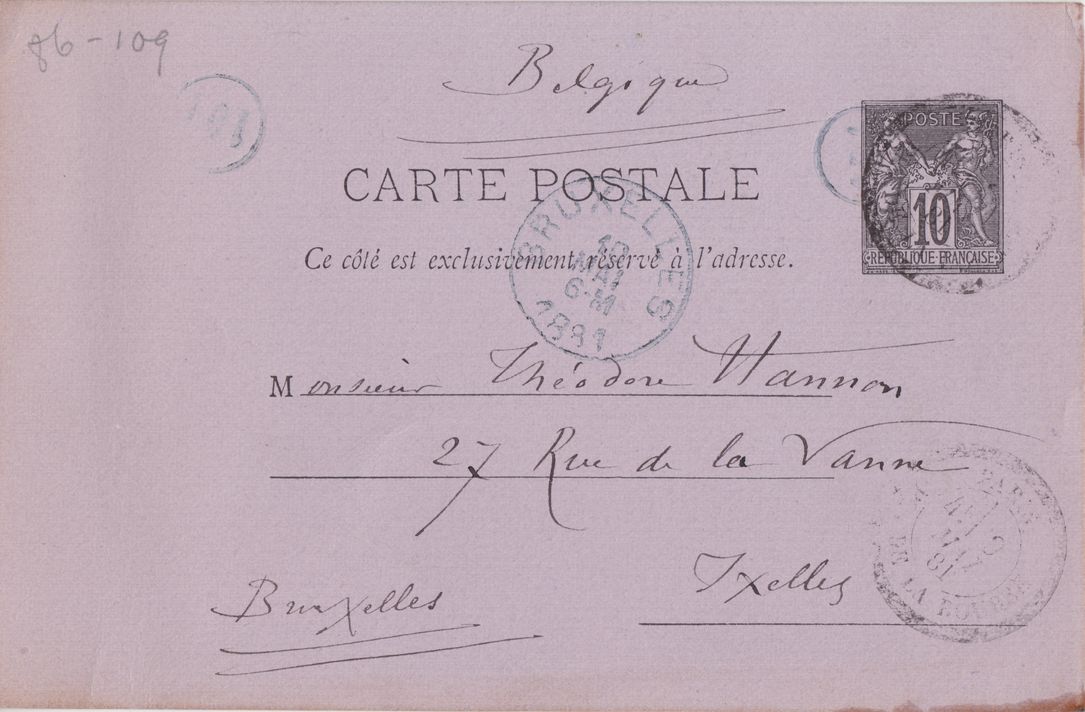 86-109
Belgique
POSTE
10
RÉPUBLIQUE FRANÇAISE
CARTE POSTALE
BRUXELLES
10
MAI
6-M
1881
Ce côté est exclusivement réservé à l'adresse.
Monsieur Théodore Hannon
27 Rue de la Vanne
Ixelles
Bruxelles
PARIS
9
MAI
81
DE LA BOURSE